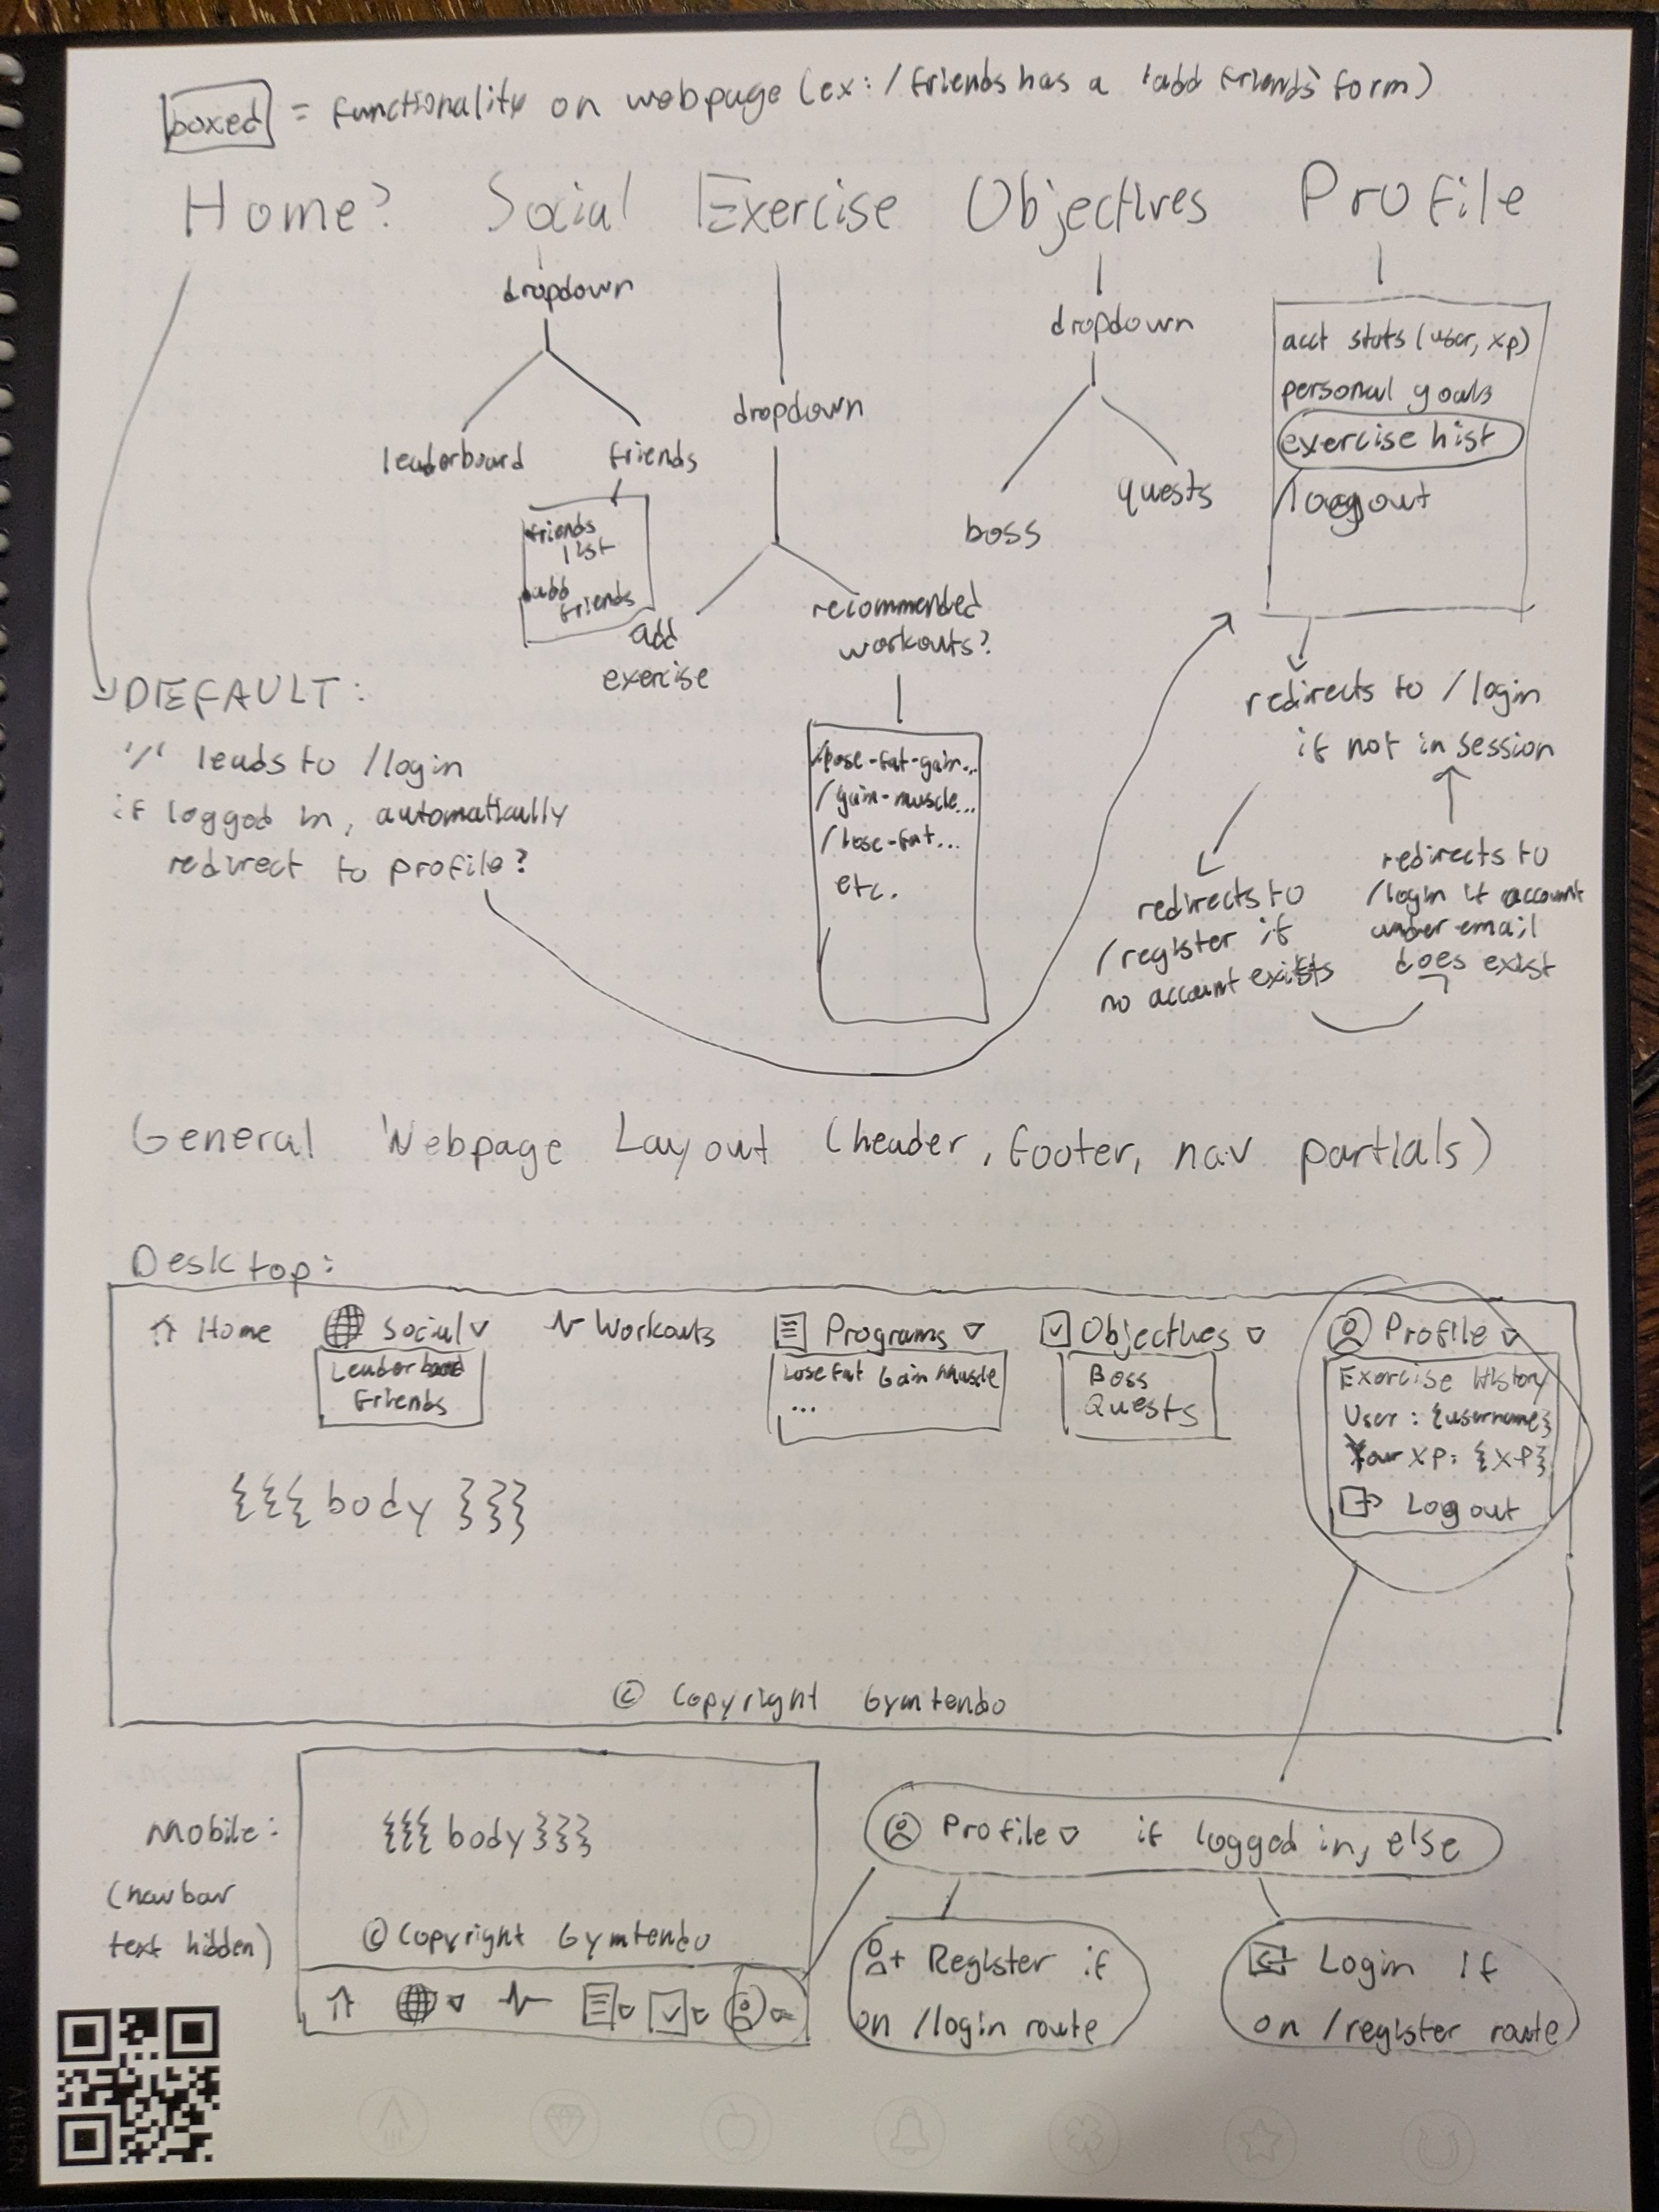 boxed = functionality on webpage (ex: /friends has a 'add friends' form)
Home? Social Exercise Objectives Profile
dropdown
leaderboard friends
friends
list
add
friends
dropdown
add
exercise
recommended
workouts?
/lose-fat-gain...
/gain-muscle...
/lose-fat...
etc.
dropdown
boss quests
acct stats (user, xp)
personal goals
exercise hist
/logout
redirects to /login
if not in session
redirects to
/register if
no account exists
redirects to
/login if account
under email
does exist
DEFAULT:
'/' leads to /login
if logged in, automatically
redirect to profile?
General Webpage Layout (header, footer, nav partials)
Desktop:
Home Social Workouts Programs Objectives Profile
Leaderboard
Friends
Lose Fat Gain Muscle
...
Boss
Quests
Exercise History
User: {username}
Your XP: {XP}
Logout
{{{ body }}}
© Copyright Gymtendo
Mobile:
(navbar
text hidden)
{{{ body }}}
© Copyright Gymtendo
Profile if logged in, else
Register if
on /login route
Login if
on /register route
N2110V